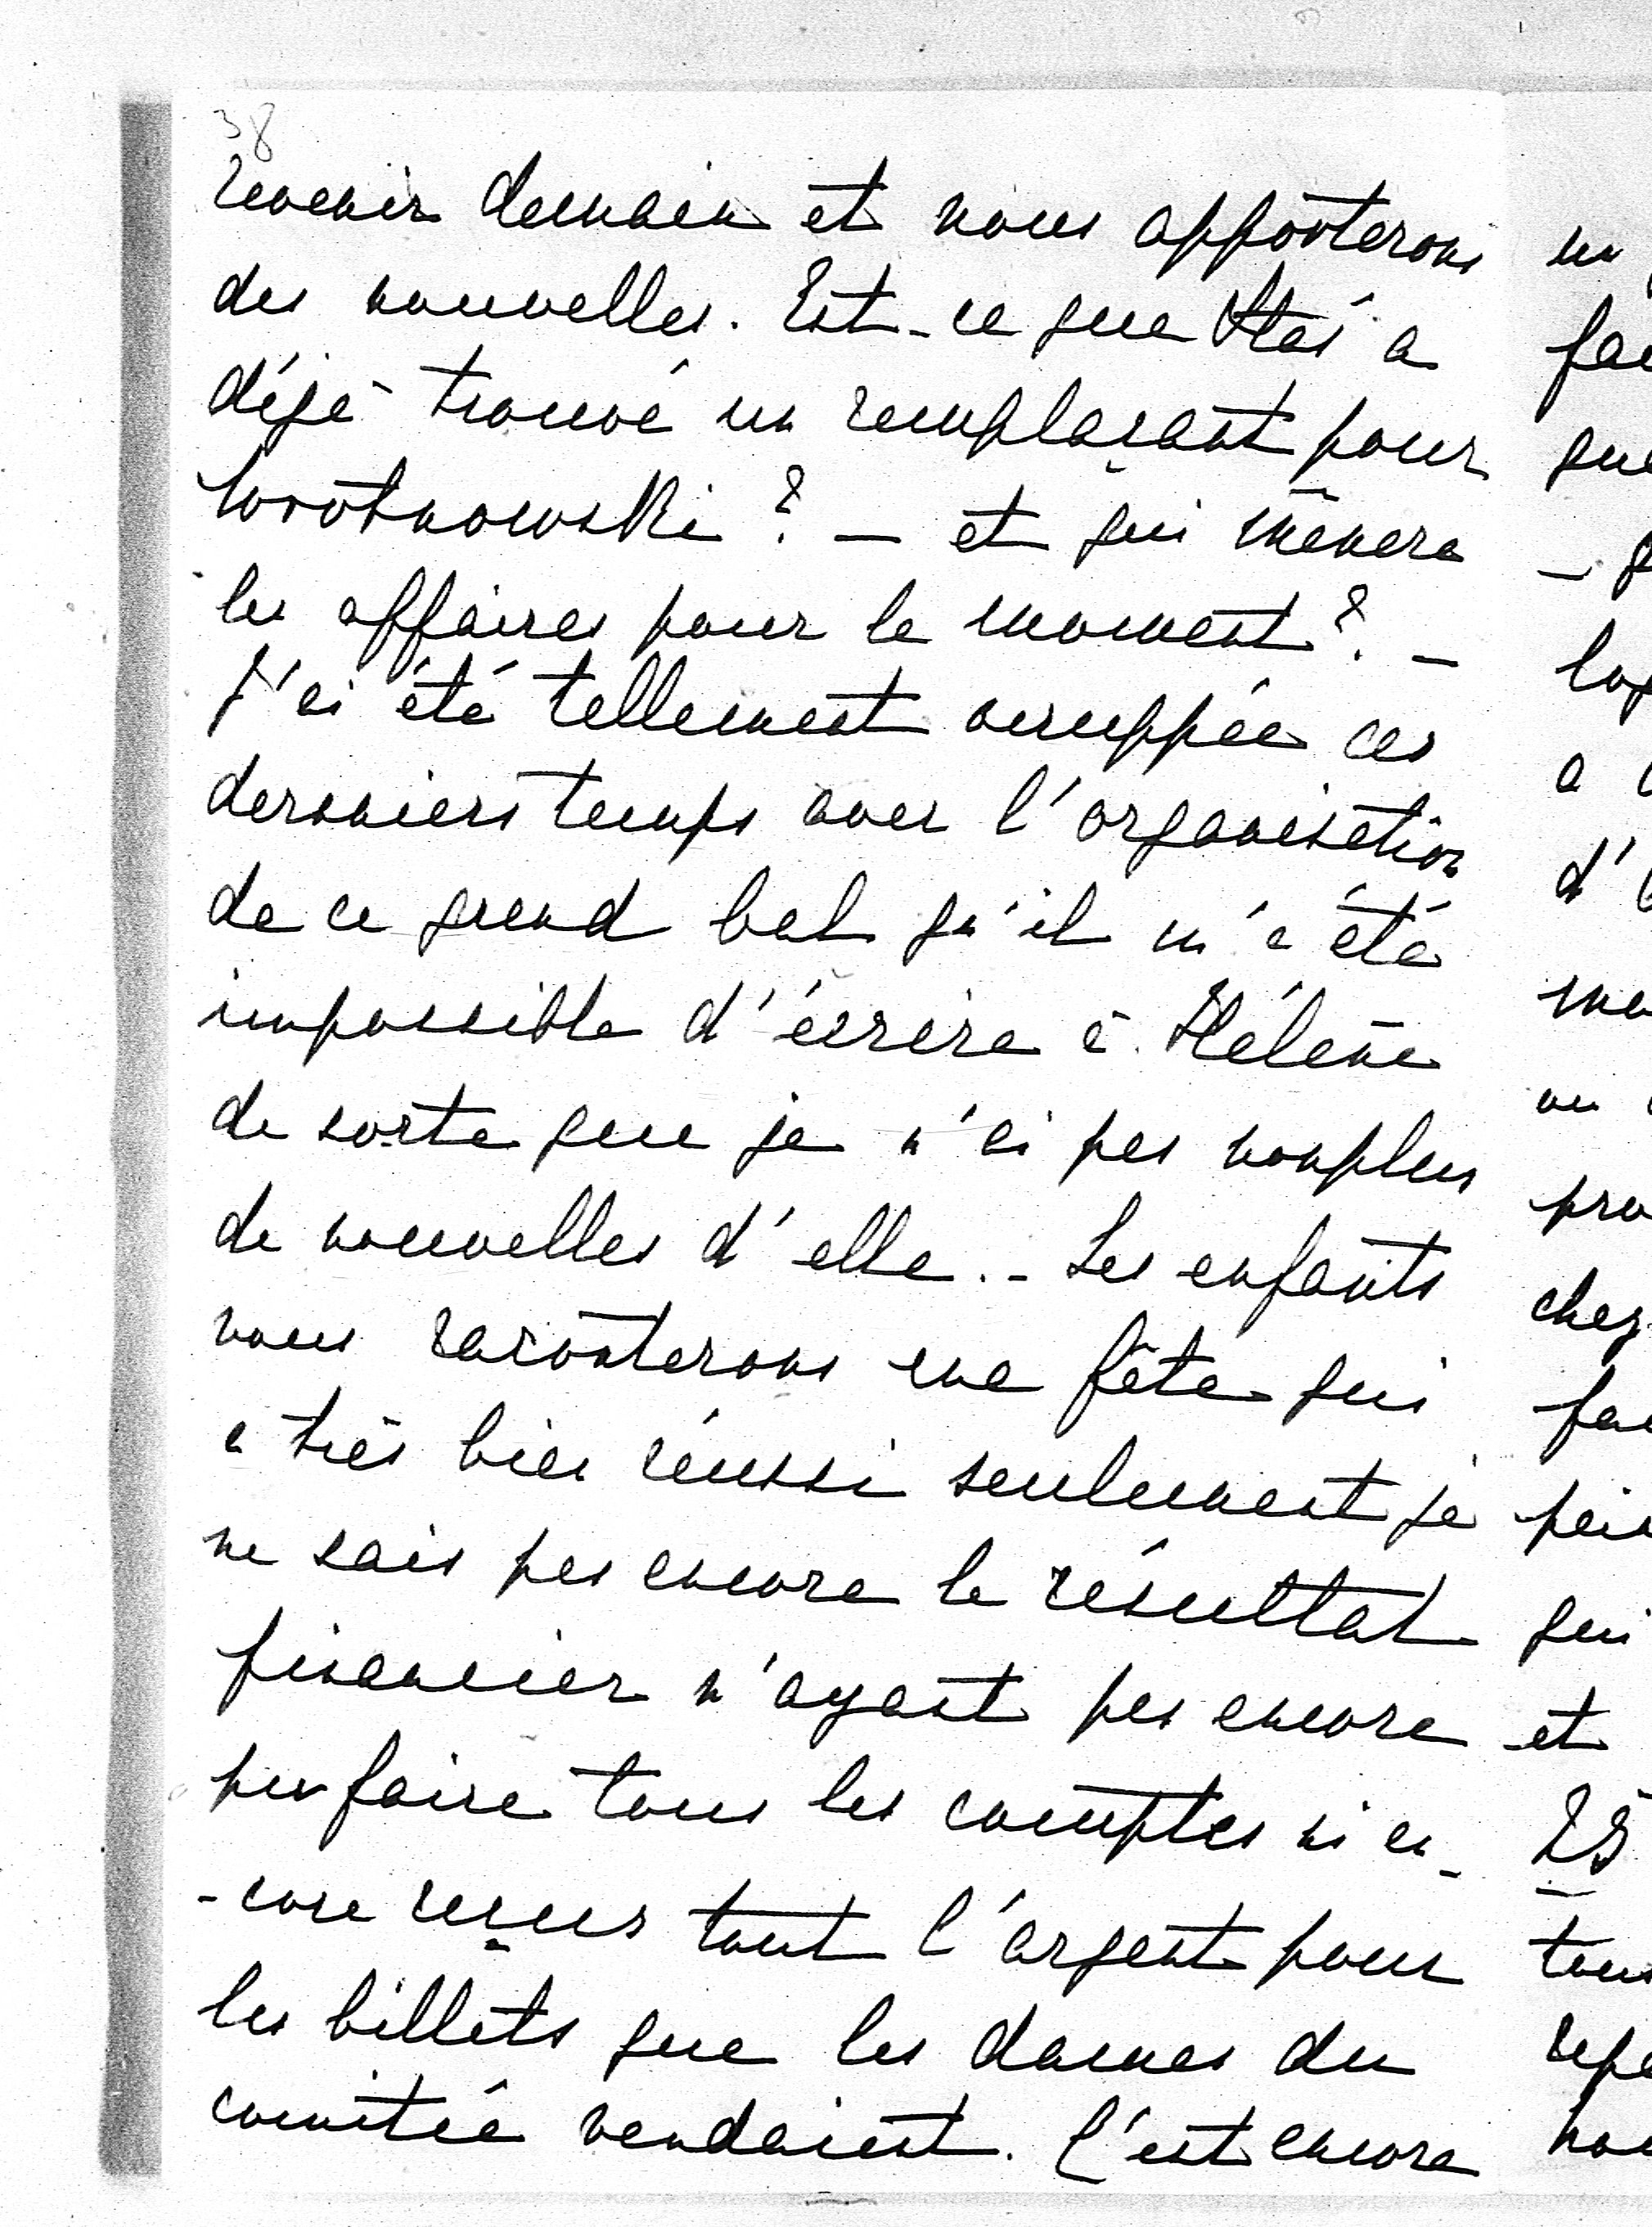 38
revenir demain et nous apporterons
des nouvelles. Est-ce que Staś a
déjà trouvé un remplaçant pour
Wrotnowski ? — et qui mènera
les affaires pour le moment ? —
J'ai été tellement occuppée ces
derniers temps avec l'organisation
de ce grand bal qu'il m'a été
impossible d'écrire à Hélène
de sorte que je n'ai pas nonplus
de nouvelles d'elle. - Les enfants
vous raconterons une fête qui
a très bien réussi seulement je
ne sais pas encore le résultat
financier n'ayant pas encore
pu faire tous les comptes ni en-
-core reçus tout l'argent pour
les billets que les dames du
comitée vendaient. C'est encore
un
fai
que
a
d'
chez
qui
et
tous